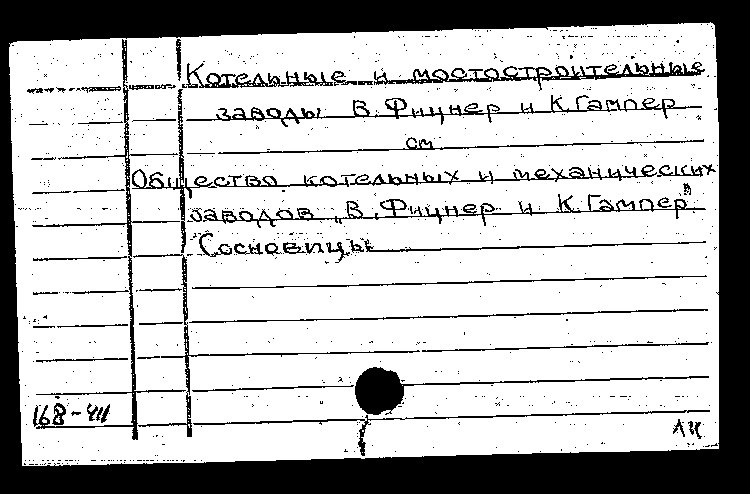 Котельные и мостостроительные
заводы В. Фицнер и К. Гампер
см
Общество котельных и механических
заводов „В. Фицнер и К. Гампер"
Сосновицы